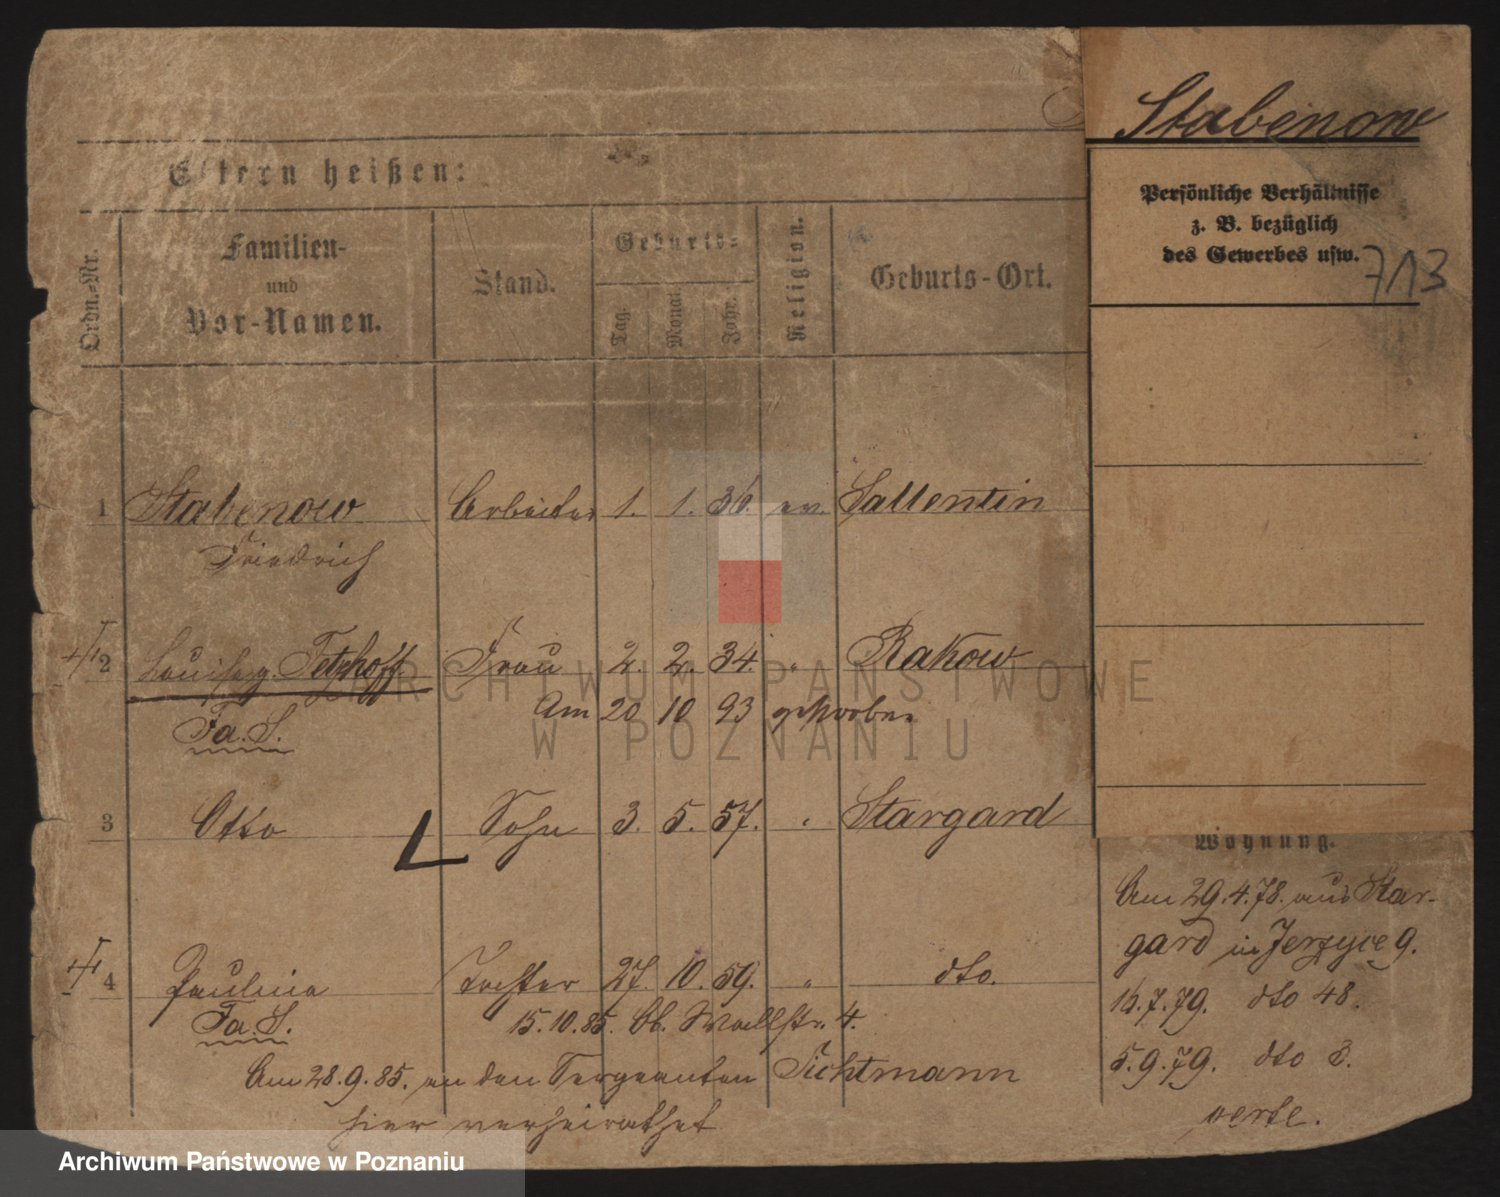 Stabenow
Eltern heißen:
Persönliche Verhältnisse
z. B. bezüglich
des Gewerbes usw.
713
Ordn.-Nr.
Familien-
und
Vor-Namen.
Stand.
Geburts-
Tag.
Monat.
Jahr.
Religion.
Geburts-Ort.
1 Stabenow Arbeiter 1. 1. 36. ev. Sallentin
Friedrich
2 Louise g. Tetzhoff Frau 2. 2. 34. " Rakow
Am 20 10 93 gestorben
Fa. S.
3 Otto Sohn 3. 5. 57. " Stargard
4 Pauline Tochter 27. 10. 59. " dto.
Fa. S.
15.10.85. Ob. Wallstr. 4.
Am 28.9.85. an den Sergeanten Sichtmann
hier verheirathet
Wohnung.
Am 29.4.78. aus Star-
gard in Jerzyce 9.
16.7.79. dto 48.
5.9.79. dto 3.
verte.
ARCHIWUM PAŃSTWOWE
W POZNANIU
Archiwum Państwowe w Poznaniu